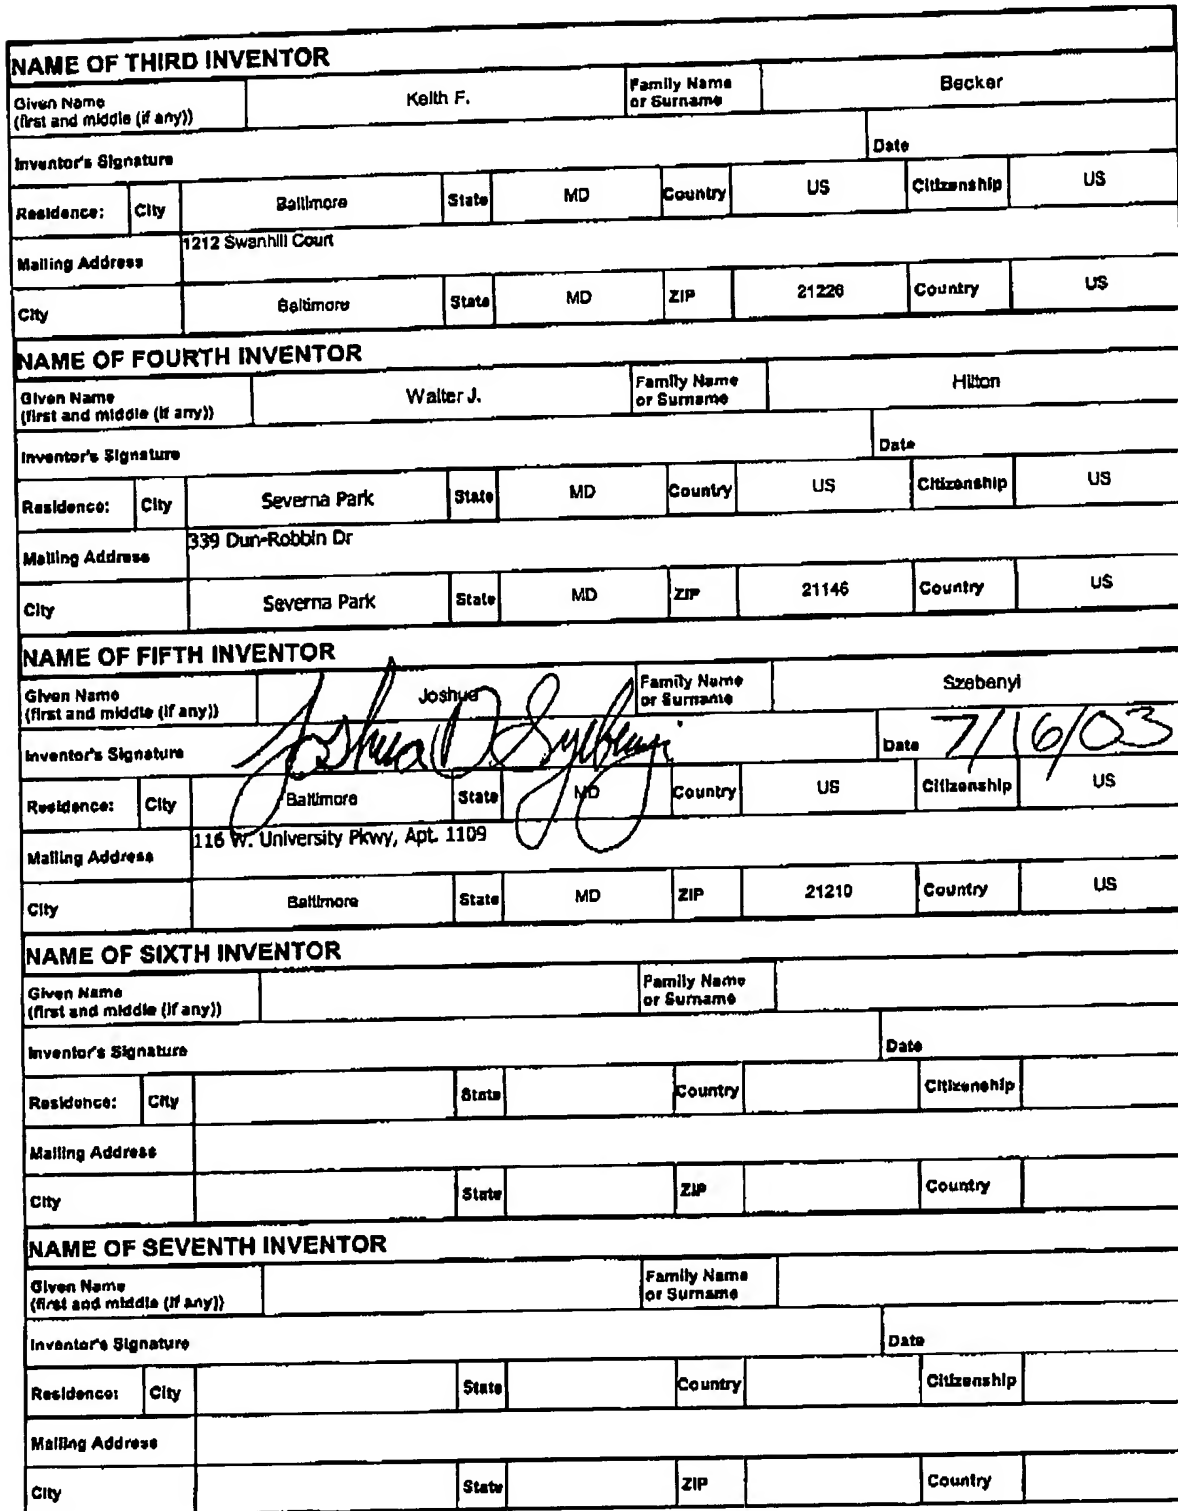 NAME OF THIRD INVENTOR
Given Name (first and middle (if any)) Keith F. Family Name or Surname Becker
Inventor's Signature Date
Residence: City Baltimore State MD Country US Citizenship US
Mailing Address 1212 Swanhill Court
City Baltimore State MD ZIP 21226 Country US
NAME OF FOURTH INVENTOR
Given Name (first and middle (if any)) Walter J. Family Name or Surname Hilton
Inventor's Signature Date
Residence: City Severna Park State MD Country US Citizenship US
Mailing Address 339 Dun-Robbin Dr
City Severna Park State MD ZIP 21146 Country US
NAME OF FIFTH INVENTOR
Given Name (first and middle (if any)) Joshua Family Name or Surname Szebenyi
Inventor's Signature Joshua D Szebenyi Date 7/16/03
Residence: City Baltimore State MD Country US Citizenship US
Mailing Address 116 W. University Pkwy, Apt. 1109
City Baltimore State MD ZIP 21210 Country US
NAME OF SIXTH INVENTOR
Given Name (first and middle (if any)) Family Name or Surname
Inventor's Signature Date
Residence: City State Country Citizenship
Mailing Address
City State ZIP Country
NAME OF SEVENTH INVENTOR
Given Name (first and middle (if any)) Family Name or Surname
Inventor's Signature Date
Residence: City State Country Citizenship
Mailing Address
City State ZIP Country